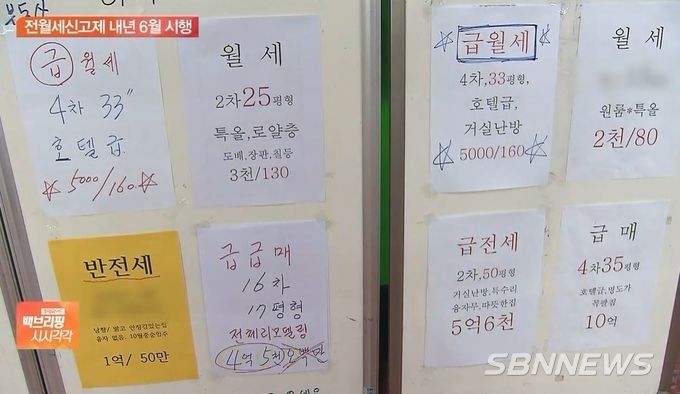 전월세신고제 내년 6월 시행
급월세
4차 33"
호텔급
5000/160
월 세
2차25평형
특올,로얄층
도배,장판,칠등
3천/130
급월세
4차,33평형,
호텔급,
거실난방
5000/160
월 세
원룸*특올
2천/80
반전세
남향/ 밝고 안정감있는집
융자 없음. 10월중순입주
1억/ 50만
급급매
16차
17평형
전체리모델링
4억 5천오백만
급전세
2차,50평형
거실난방,특수리
융자무,따뜻한집
5억6천
급 매
4차35평형
호텔급,명도가
목팔집
10억
백브리핑
시시각각
SBNNEWS